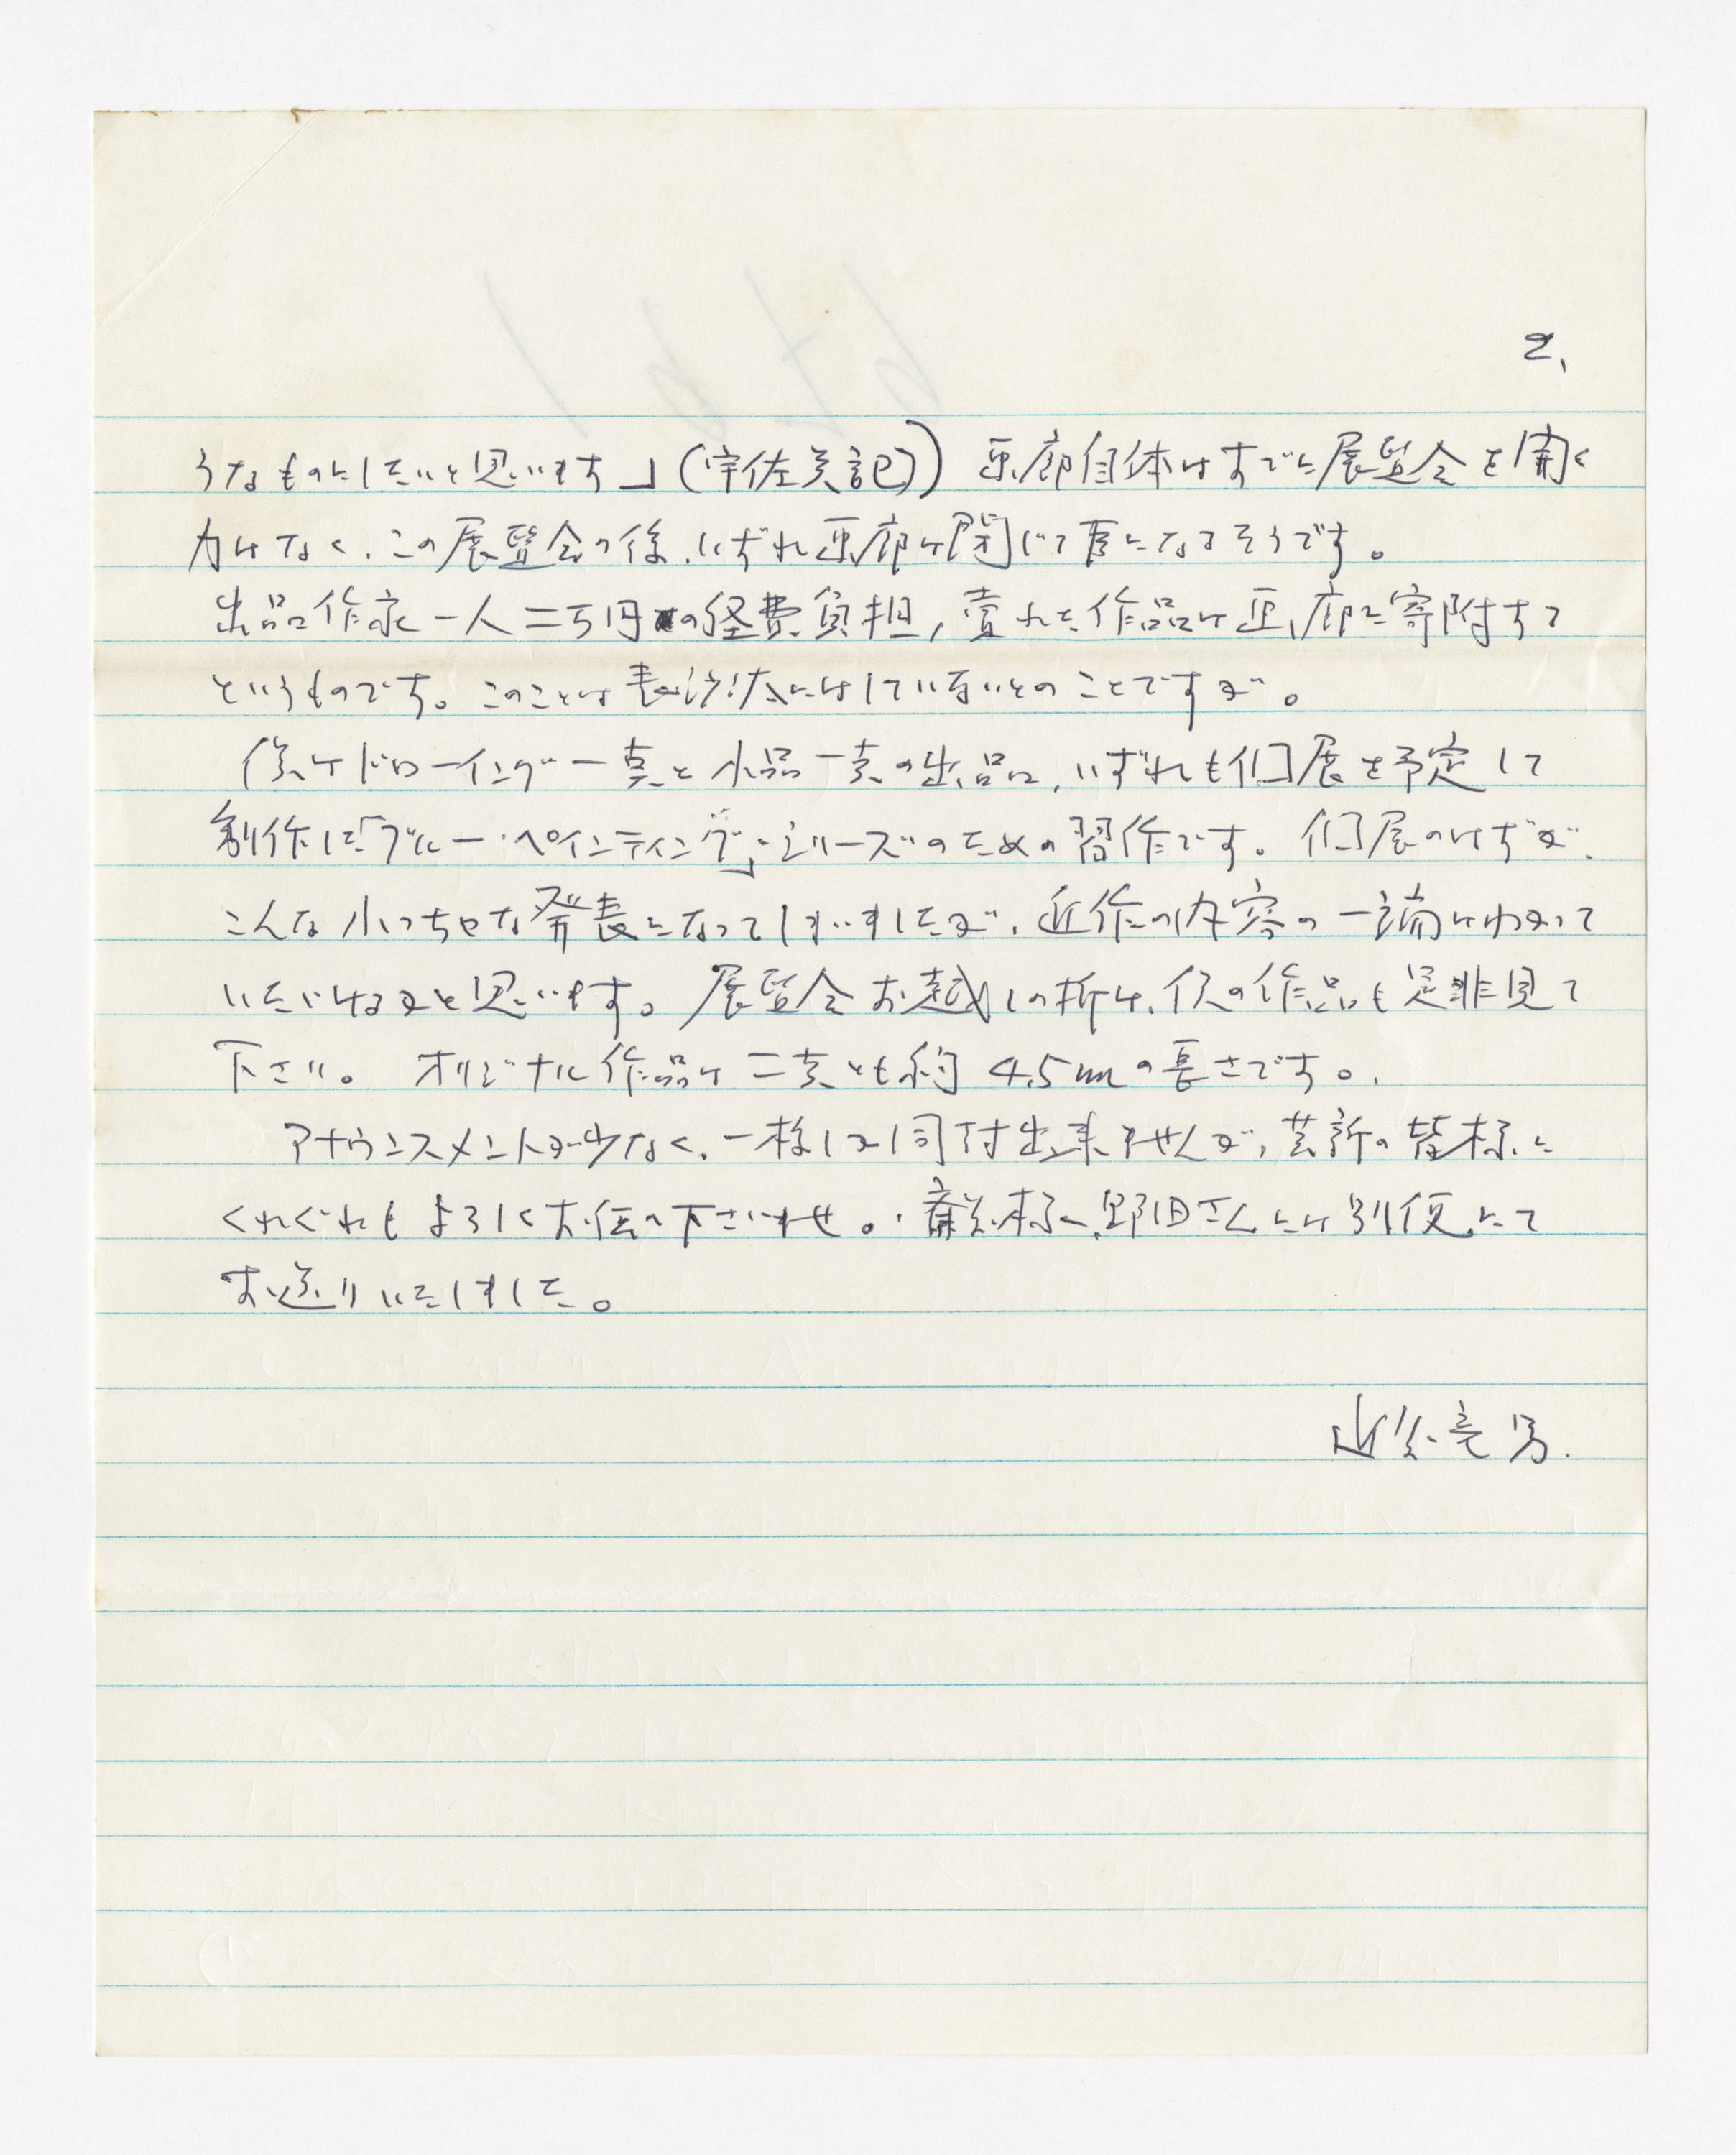 2.
うなものにしたいと思います」(宇佐美記)) 画廊自体はすでに展覧会を開く
力はなく、この展覧会の後、いずれ画廊は閉じる事になるそうです。
出品作家一人二万円の経費負担, 売れた作品は画廊に寄附する
というものです。このことは表沙汰にはしていないとのことですが。
僕はドローイング一点と小品一点の出品に、いずれも個展を予定して
制作した「ブルー・ペインティング」シリーズのための習作です。個展のはずが、
こんな小っちゃな発表になってしまいましたが、近作の内容の一端はわかって
いただけるかと思います。展覧会お越しの折は、僕の作品も是非見て
下さい。 オリジナル作品は二点とも約4.5mの長さです。
アナウンスメントが少なく、一枚しか同付出来ませんが、芸術の皆様に
くれぐれもよろしくお伝へ下さいませ。 様、野田さんには別便にて
お送りいたしました。
近 竜男.